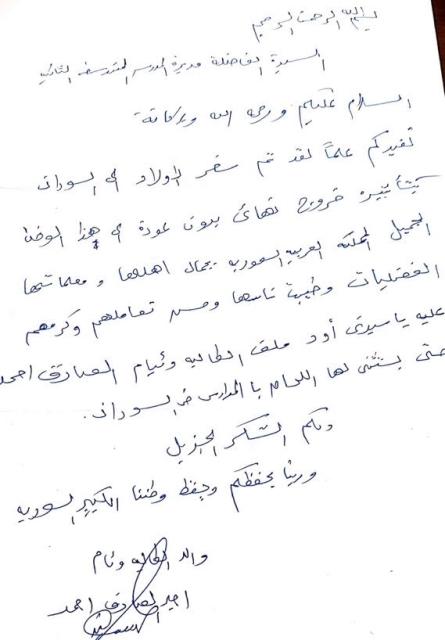 بسم الله الرحمن الرحيم
السيدة الفاضلة مديرة المدرسة المتوسطة الثانية
السلام عليكم ورحمة الله وبركاته
نفيدكم علماً لقد تم سفر الاولاد الى السودان
بتأشيرة خروج نهائى بدون عودة الى هذا الوطن
الجميل المملكة العربيه السعوديه بجمال اهلها ومعلماتها
الفضليات وطيبة ناسها وحسن تعاملهم وكرمهم
عليه يا سيدتى أود ملف الطالبه وئام الصادق احمد
حتى يتثنى لها اللحاق بالمدارس فى السودان.
ولكم الشكر الجزيل
وربنا يحفظكم ويحفظ وطننا الكبير السعوديه
والد الطالبه وئام
الصادق احمد